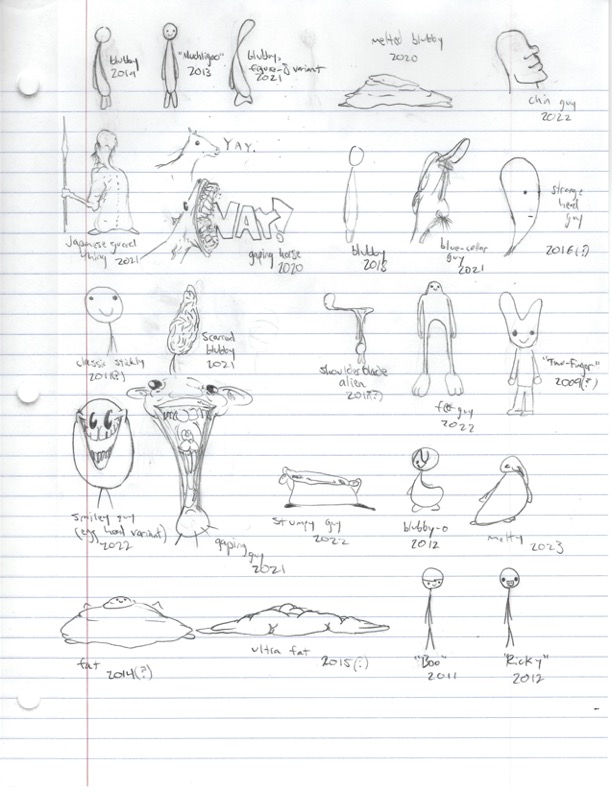 blubby
2019
"Muchligoo"
2013
blubby-
figure-8 variant
2021
melted blubby
2020
chin guy
2022
YAY.
NAY?
Japanese guard
thing 2021
gaping horse
2020
blubby
2018
blue-collar
guy
2021
strange
head
guy
2016(?)
classic stickly
2011(?)
scarred
blubby
2021
shoulderblade
alien
201?(?)
foot guy
2022
"Two-Finger"
2009(?)
smiley guy
(egg head variant)
2022
gaping
guy
2021
stumpy guy
2022
blubby-o
2012
melty 2023
fat 2014(?)
ultra fat
2015(?)
"Boo"
2011
"Ricky"
2012